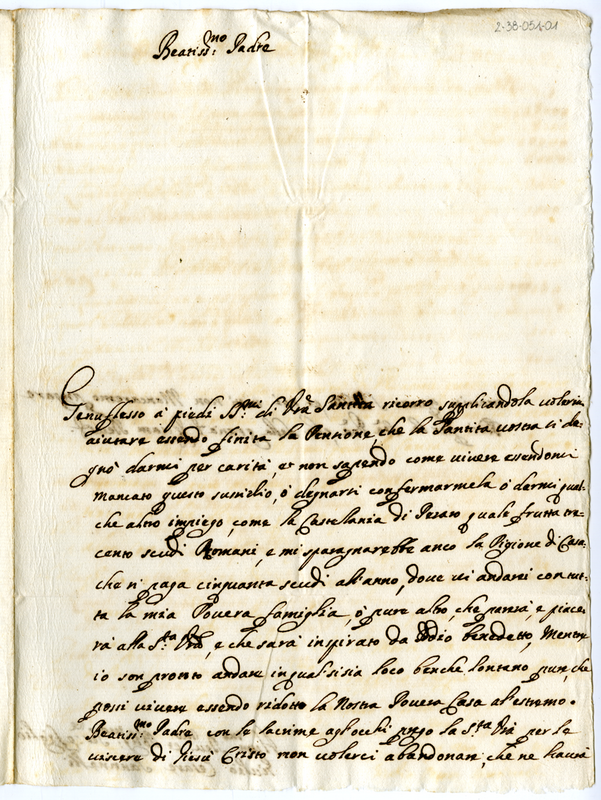 2-38-051-01
Beatiss:mo Padre
Genuflesso a piedi SS:mi di Vrã Santita ricorro supplicandola volermi
aiutare essendo finita la Pensione, che la Santita vostra si de-
gnò darmi per carità, e non sapendo come vivere essendomi
mancato questo susidio, ò degnarsi confermarmela ò darmi qual-
che altro impiego, come la Castellania di Pesaro quale frutta tre-
cento scudi Romani, e mi sparagnarebbe anco la Pigione di Casa
che si paga cinquanta scudi all'anno, dove vi andarei con tut-
ta la mia Povera famiglia, ò pure altro, che parerà, e piace-
rà alla S.ta Vrã, e che sarà inspirato da Iddio benedetto, Mentre
io son pronto andare in qual sisia loco benche lontano pure, che
possi vivere essendo ridotto la Nostra Povera Casa al estremo.
Beatiss:mo Padre con le lacrime agl'occhi prego la S.ta Vrã per le
viscere di Giesù Cristo non volerci abandonare, che ne haurà